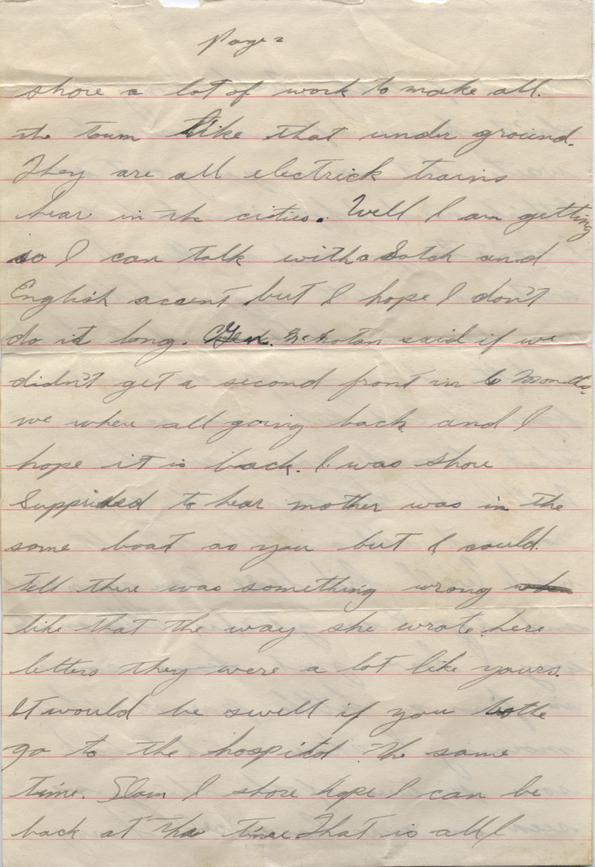 Page 2
shore a lot of work to make all
the town like that under ground.
They are all electrick trains
hear in the cities. Well I am getting
so I can talk with a Scotch and
English accent but I hope I don't
do it long. Gen. said if we
didn't get a second front in 6 Months
we where all going back and I
hope it is back. I was shore
to hear mother was in the
same boat as you but I could
tell there was something wrong
like that the way she wrote here
letters they were a lot like yours.
It would be swell if you bothe
go to the hospitd the same
time. I shore hope I can be
back at the time. That is all I